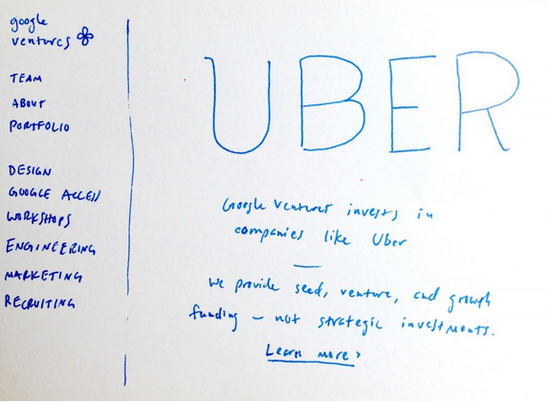 google
ventures
TEAM
ABOUT
PORTFOLIO
DESIGN
GOOGLE ACCESS
WORKSHOPS
ENGINEERING
MARKETING
RECRUITING
UBER
Google Ventures invests in
companies like Uber
We provide seed, venture, and growth
funding – not strategic investments.
Learn more >